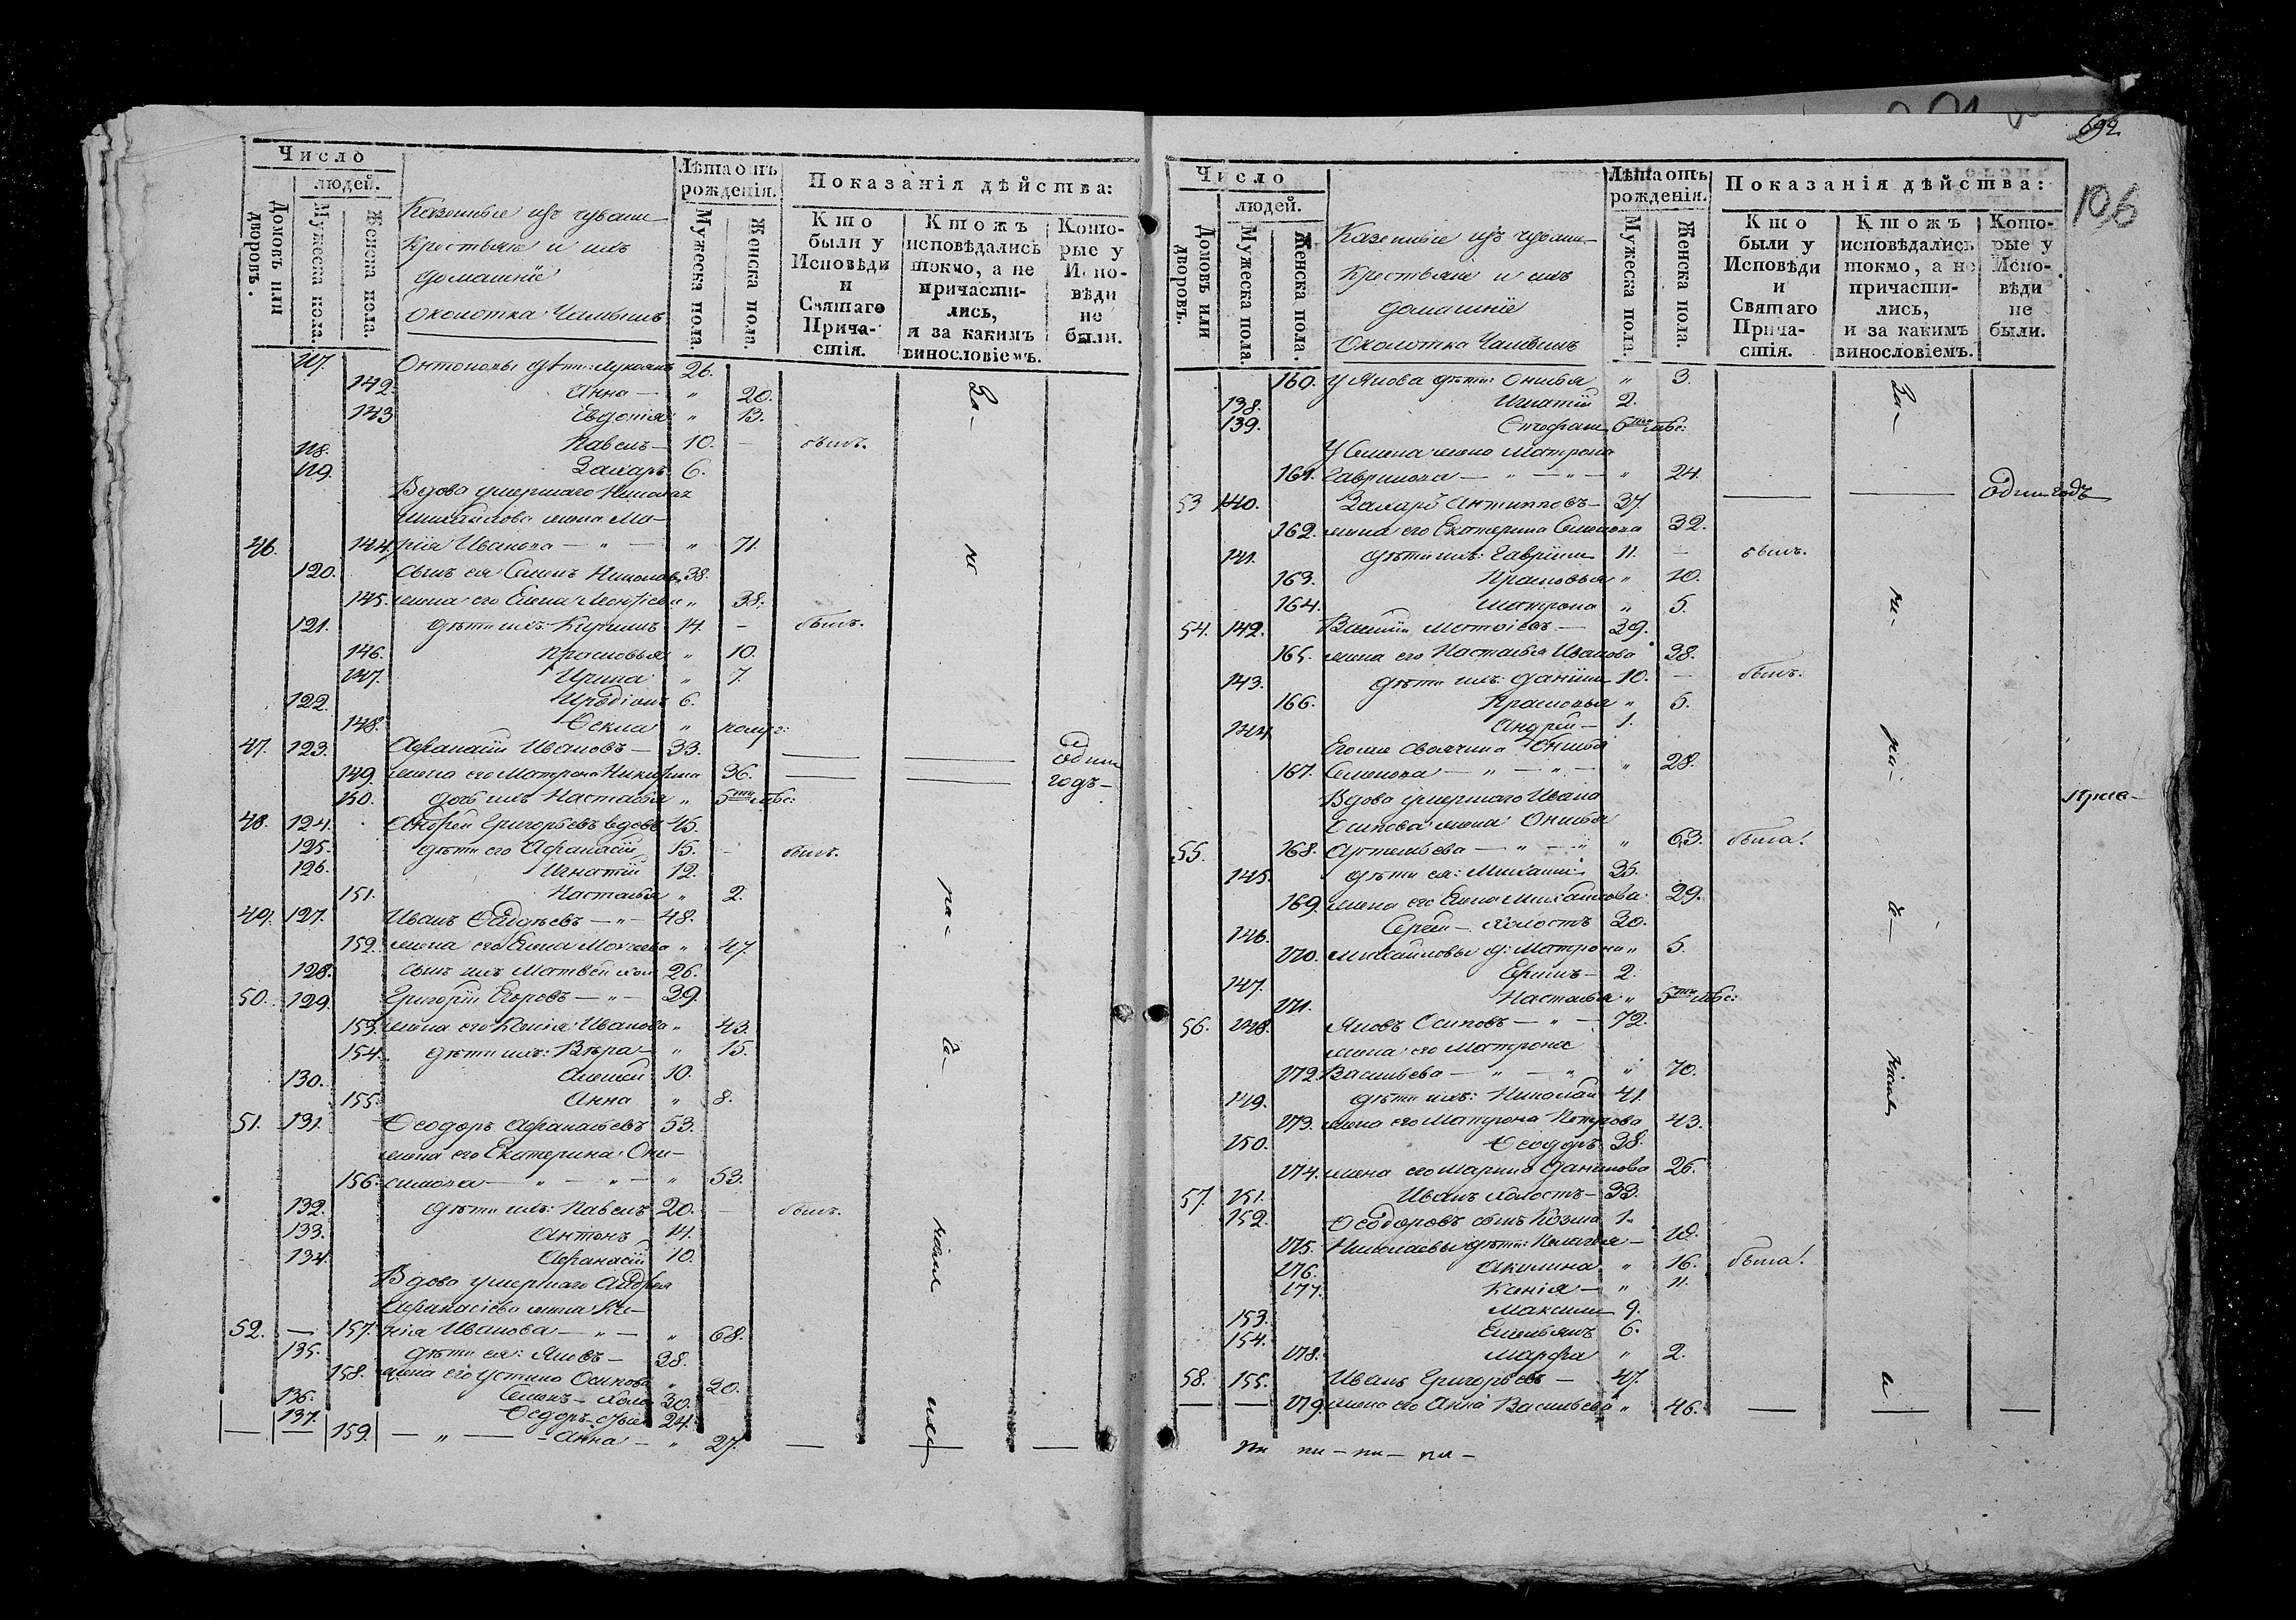 Число
людей.
Домовъ или дворовъ.
Мужеска пола.
Женска пола.
Казенные изъ чуваш
Крестьяне и ихъ
домашніе
околотка
Лѣта отъ рожденія.
Мужеска пола.
Женска пола.
Показанія дѣйства:
Кто были у Исповѣди и Святаго Причастія.
Ктожъ исповѣдались токмо, а не причастились, и за какимъ винословіемъ.
Которые у Исповѣди не были.
117. дѣти: 26.
142. Анна — " 20.
143 Евдокія " 13.
118. Павелъ — 10. — былъ.
119. Захаръ 6.
Вдова умершаго Николая
Михайлова жена Ма-
46. 144. рія Иванова — " — " 71.
120. сынъ ея Семенъ 38.
145. жена его Елена " 38.
121. дѣти ихъ: Кирилъ 14. — былъ.
146. Прасковья " 10.
147. Ирина " 7.
122. 6.
148. Ѳекла " полуг:
47. 123. Афанасій Ивановъ — 33. один
149. жена его Матрона Никифорова 36. годъ —
150. дочь ихъ Настасья " 5ти мѣс:
48. 124. Андрей Григорьевъ вдовъ 45.
125. дѣти его Афанасій 15. — былъ.
126. Игнатій 12.
151. Настасья " 2.
49. 127. Иванъ — " — 48.
152. жена его Елена " 47.
128. сынъ ихъ Матвей хол 26.
50. 129. Григорій Егоровъ — " — 39.
153. жена его Ксенія Иванова " 43.
154. дѣти ихъ: Вѣра — " 15.
130. Алексей 10.
155. Анна " 8.
51. 131. Ѳеодоръ Афанасьевъ 53.
жена его Екатерина Они-
156. симова — " — " — " 53.
132. дѣти ихъ: Павелъ 20. — былъ.
133. Антонъ 14.
134. Афанасій 10.
Вдова умершаго Андрея
Афанасіева жена Ксе-
52. — 157. нія Иванова — " — " 68.
135. дѣти ея: Яковъ — 38.
158. жена его Устина Осипова " 30.
136. Семенъ — холо 30.
137. Ѳедоръ 24.
159. — " — Анна — " 27.
За-
не
ра-
де-
ніем
692
106
Число
людей.
Домовъ или дворовъ.
Мужеска пола.
Женска пола.
Казенные изъ чуваш-
Крестьяне и ихъ
домашніе
Околотка
Лѣта отъ рожденія.
Мужеска пола.
Женска пола.
Показанія дѣйства:
Кто были у Исповѣди и Святаго Причастія.
Ктожъ исповѣдались токмо, а не причастились, и за какимъ винословіемъ.
Которые у Исповѣди не были.
160. У Якова дѣти: Онисья " 3.
138. Игнатій 2.
139. Стефанъ 5ти мѣс:
У Семена жена Матрона
161. Гаврилова — " — " — " 24.
53 140. Захаръ Антиповъ — 37. один годъ
162. жена его Екатерина Семенова 32.
141. дѣти ихъ: Гаврилъ 11. — былъ.
163. Прасковья " 10.
164. Матрона " 5.
54. 142. Василій — 39.
165. жена его Настасья Иванова 38.
143. дѣти ихъ: Данилъ 10. — былъ.
166. Прасковья " 5.
144. Андрей — 1.
Егоже своячина Онисья
167. Семенова — " — " — " 28.
Вдова умершаго Ивана
Осипова жена Онисья
55. 168. Артемьева — " — " " 63. была!
145. дѣти ея: Михаилъ 35.
169. жена его Елена Михайлова 29.
146. Сергей — холостъ 30.
170. Михайловы д: Матрона " 5.
147. 2.
171. Настасья " 5ти мѣс:
56. 148. Яковъ Осиповъ — " — 72.
жена его Матрона
172. Васильева — " — " " 70.
149. дѣти ихъ: Николай 41.
173. жена его Матрона Петрова 43.
150. Ѳеодоръ 38.
174. жена его Марина Данилова 26.
57. 151. Иванъ холостъ — 33.
152. Ѳеодоровъ сынъ Козма 1.
175. Николаевы дѣти: Пелагея —
176. Акилина " 16. была!
177. Ксенія — " 11.
153. Максимъ 9.
154. Емельянъ 6.
178. Марфа " 2.
58. 155. Иванъ Григорьевъ — 47.
179. жена его Анна Васильева " 46.
За-
не-
ра-
де-